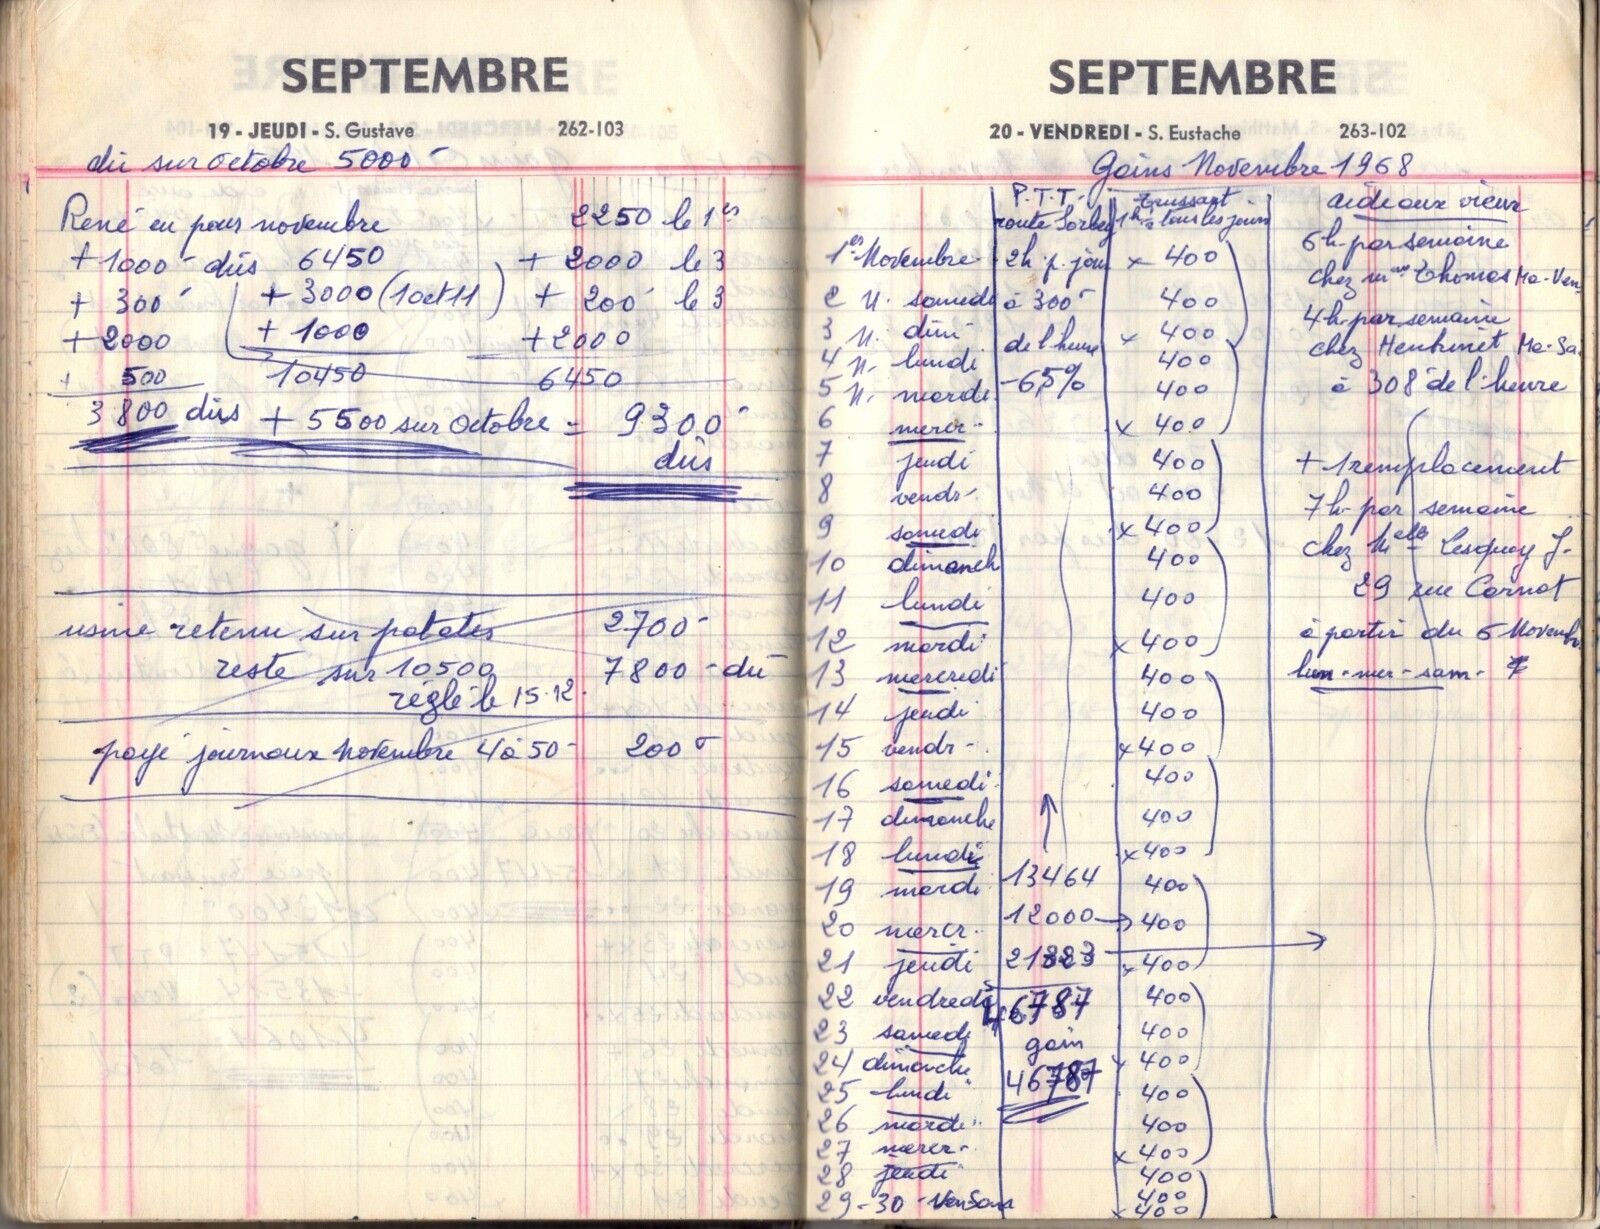 SEPTEMBRE
19 - JEUDI - S. Gustave 262-103
dû sur octobre 5000
René eu pour novembre 2250 le 1er
+ 1000 dûs 6450 + 2000 le 3
+ 300 + 3000 (1oct11) + 200 le 3
+ 2000 + 1000 + 2000
+ 500 10450 6450
3800 dûs + 5500 sur octobre = 9300
dûs
usine retenu sur patates 2700
reste sur 10500 7800 - dû
réglé le 15.12.
payé journaux Novembre 4 à 50 - 200
SEPTEMBRE
20 - VENDREDI - S. Eustache 263-102
Gains Novembre 1968
P.T.T. trussart aide aux vieux
route Sorbey 1h à tous les jours
6h par semaine
1er Novembre 2h. p. jour x 400
chez Mme Thomas Ma-Ven
2 N. samedi à 300 400
4h par semaine
3 N. dim de l'heure x 400
chez Henkinet Ma-Sa
4 N. lundi 400
5 N. mardi -6,5% 400
à 308 de l'heure
6 mercr- x 400
7 jeudi 400
+ 1 remplacement
8 vendr- 400
7h par semaine
9 samedi x 400
chez Melle Lesquoy J-
10 dimanch 400
29 rue Carnot
11 lundi 400
à partir du 6 Novemb
12 mardi x 400
13 mercredi 400
lun-mer-sam-
14 jeudi 400
15 vendr- x 400
16 samedi 400
17 dimanche 400
18 lundi x 400
19 mardi 13464 400
20 mercr- 12000 → 400
21 jeudi 21323 x 400
22 vendredi 46787 400
23 samedi gain 400
24 dimanche 46787 x 400
25 lundi 400
26 mardi 400
27 mercr- x 400
28 jeudi 400
29-30 - Ven Sam 400
x 400